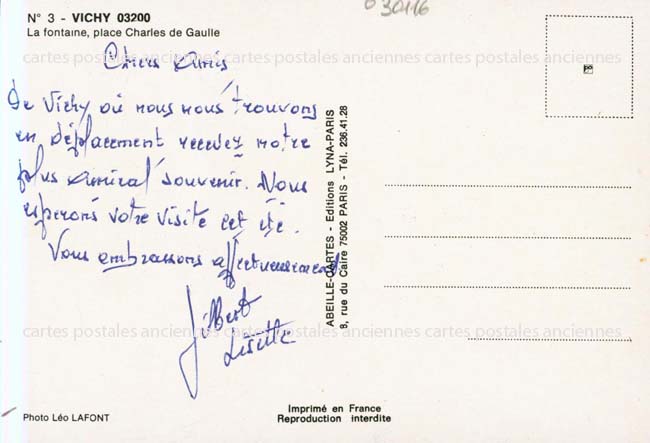 030116
N° 3 - VICHY 03200
La fontaine, place Charles de Gaulle
cartes postales anciennes cartes postales anciennes
Chers Amis
De Vichy où nous nous trouvons
en déplacement recevez notre
plus amical souvenir. Nous
esperons votre visite cet été.
Vous embrassons affectueusement
Gilbert
Lisette
cartes postales anciennes cartes postales anciennes
ABEILLE-CARTES - Editions LYNA-PARIS
8, rue du Caire 75002 PARIS - Tél. 236.41.28
Photo Léo LAFONT
Imprimé en France
Reproduction interdite